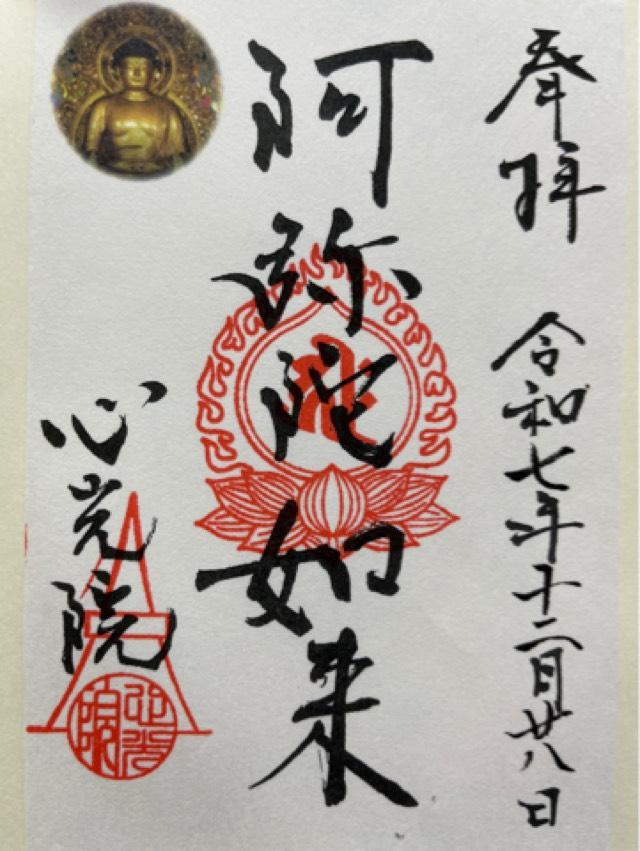 奉拝　令和七年十二月廿八日
阿弥陀如来
心光院
心光院